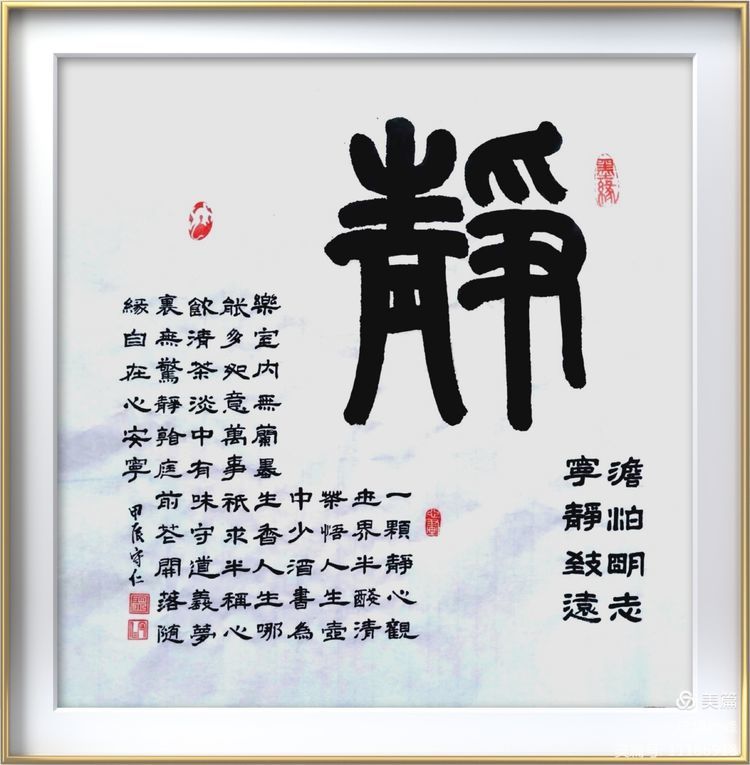 靜
墨緣
澹泊明志
寧靜致遠
一顆靜心觀
世界半醆清
茶悟人生壺
中少酒書為
樂室内無蘭墨生香人生哪
能多如意萬事祇求半稱心
飲清茶淡中有味守道義夢
裏無驚靜看庭前芲開落隨
緣自在心安寧
甲辰守仁
美篇